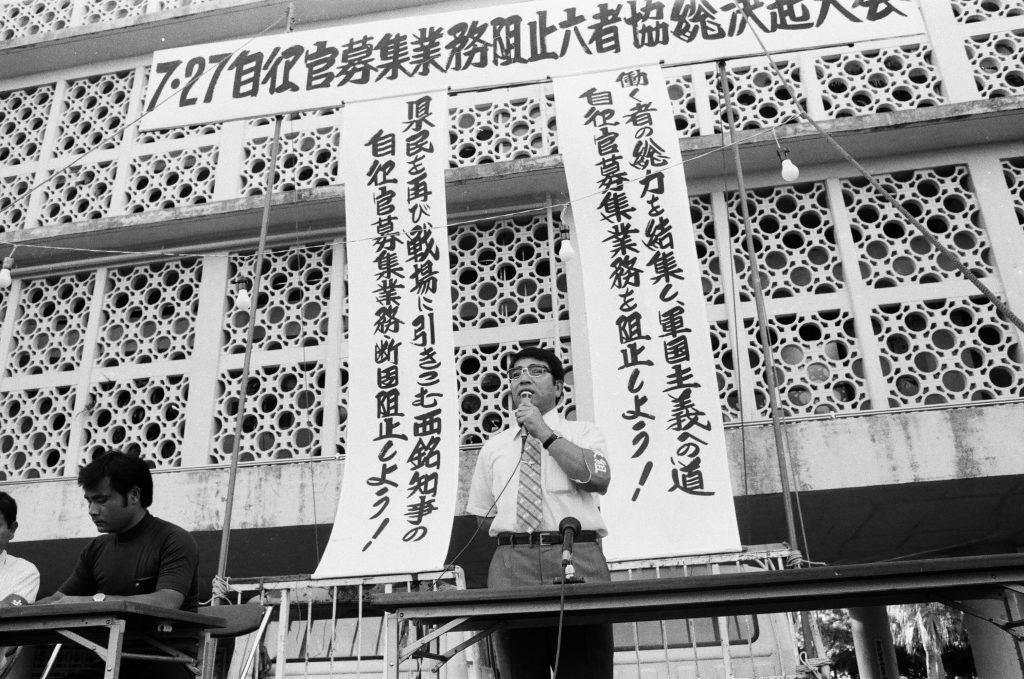 7・27自衛官募集業務阻止六者協総決起大会
働く者の総力を結集し、軍国主義への道
自衛官募集業務を阻止しよう！
県民を再び戦場に引きこむ西銘知事の
自衛官募集業務断固阻止しよう！